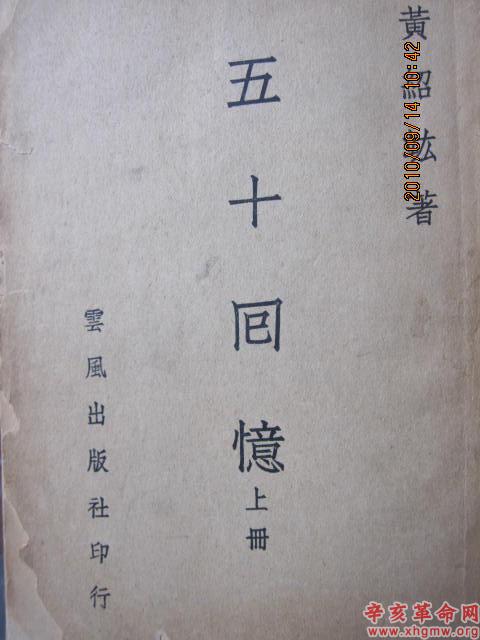 黃紹竑著
五十回憶
上冊
雲風出版社印行
2010/09/14 10:42
辛亥革命网
www.xhgmw.org